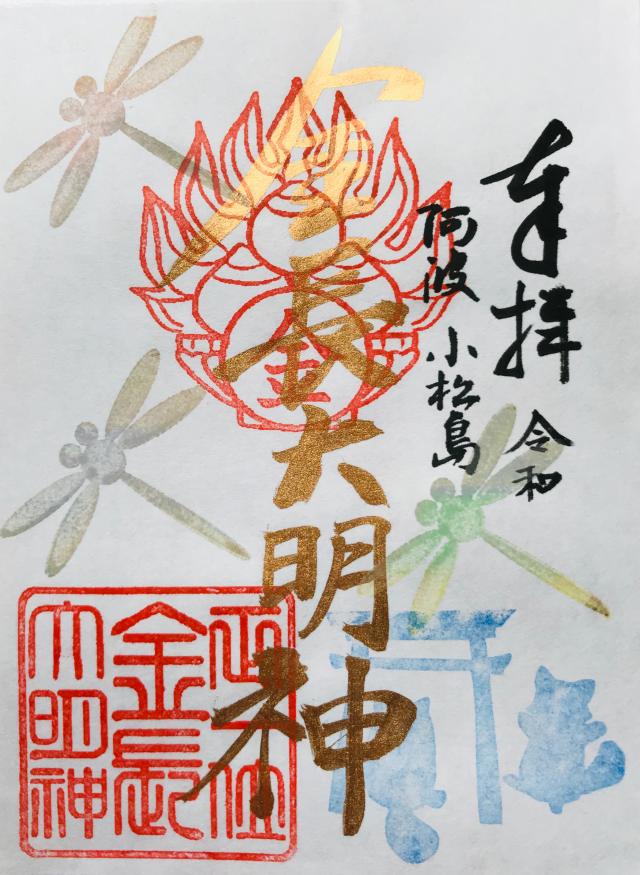 奉拝
令和
阿波 小松島
金長大明神
金
正一位
金長
大明神